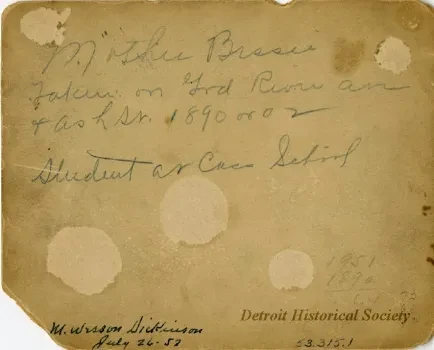 Mother Bessie
Taken on Grd River ave
& Ash St. 1890 or 02
Student at Cass School
1951
1890
M. Wesson Dickinson
July 26-52
Detroit Historical Society
53.315.1